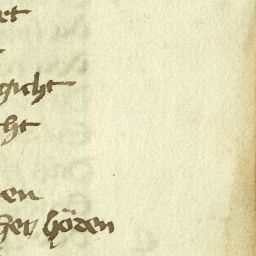 et
gicht
cht
en
her höden